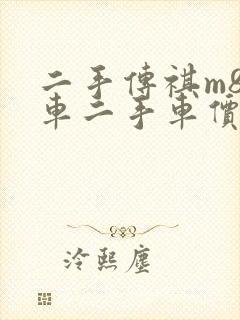 二手傳祺m8
車二手車價
冷熙塵